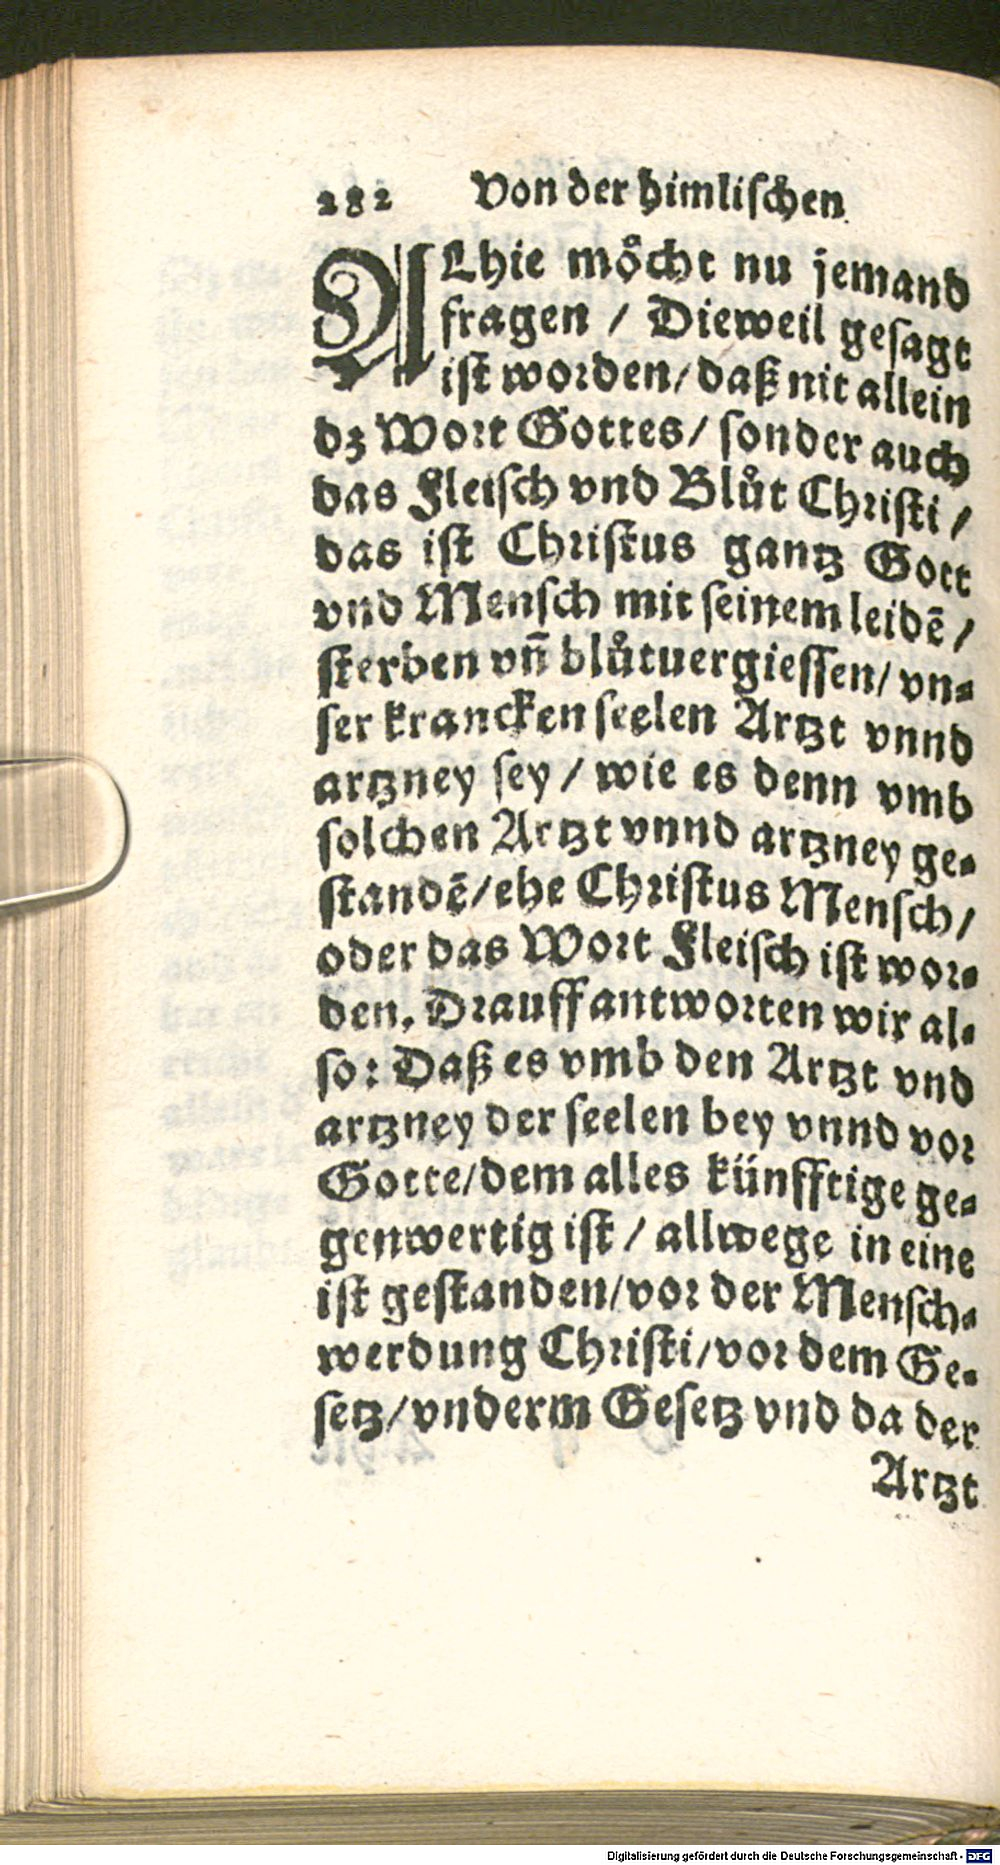 282 Von der himlischen
ALhie möcht nu jemand
fragen / Dieweil gesagt
ist worden/ daß nit allein
dz Wort Gottes/ sonder auch
das Fleisch vnd Blůt Christi /
das ist Christus gantz Gott
vnd Mensch mit seinem leidē /
sterben vn̄ blůtuergiessen/ vn-
ser krancken seelen Artzt vnnd
artzney sey / wie es denn vmb
solchen Artzt vnnd artzney ge-
standē/ ehe Christus Mensch/
oder das Wort Fleisch ist wor-
den. Drauff antworten wir al-
so: Daß es vmb den Artzt vnd
artzney der seelen bey vnnd vor
Gotte/ dem alles künfftige ge-
genwertig ist / allwege in eine
ist gestanden/ vor der Mensch-
werdung Christi/ vor dem Ge-
setz/ vnderm Gesetz vnd da der
Artzt
Digitalisierung gefördert durch die Deutsche Forschungsgemeinschaft - DFG